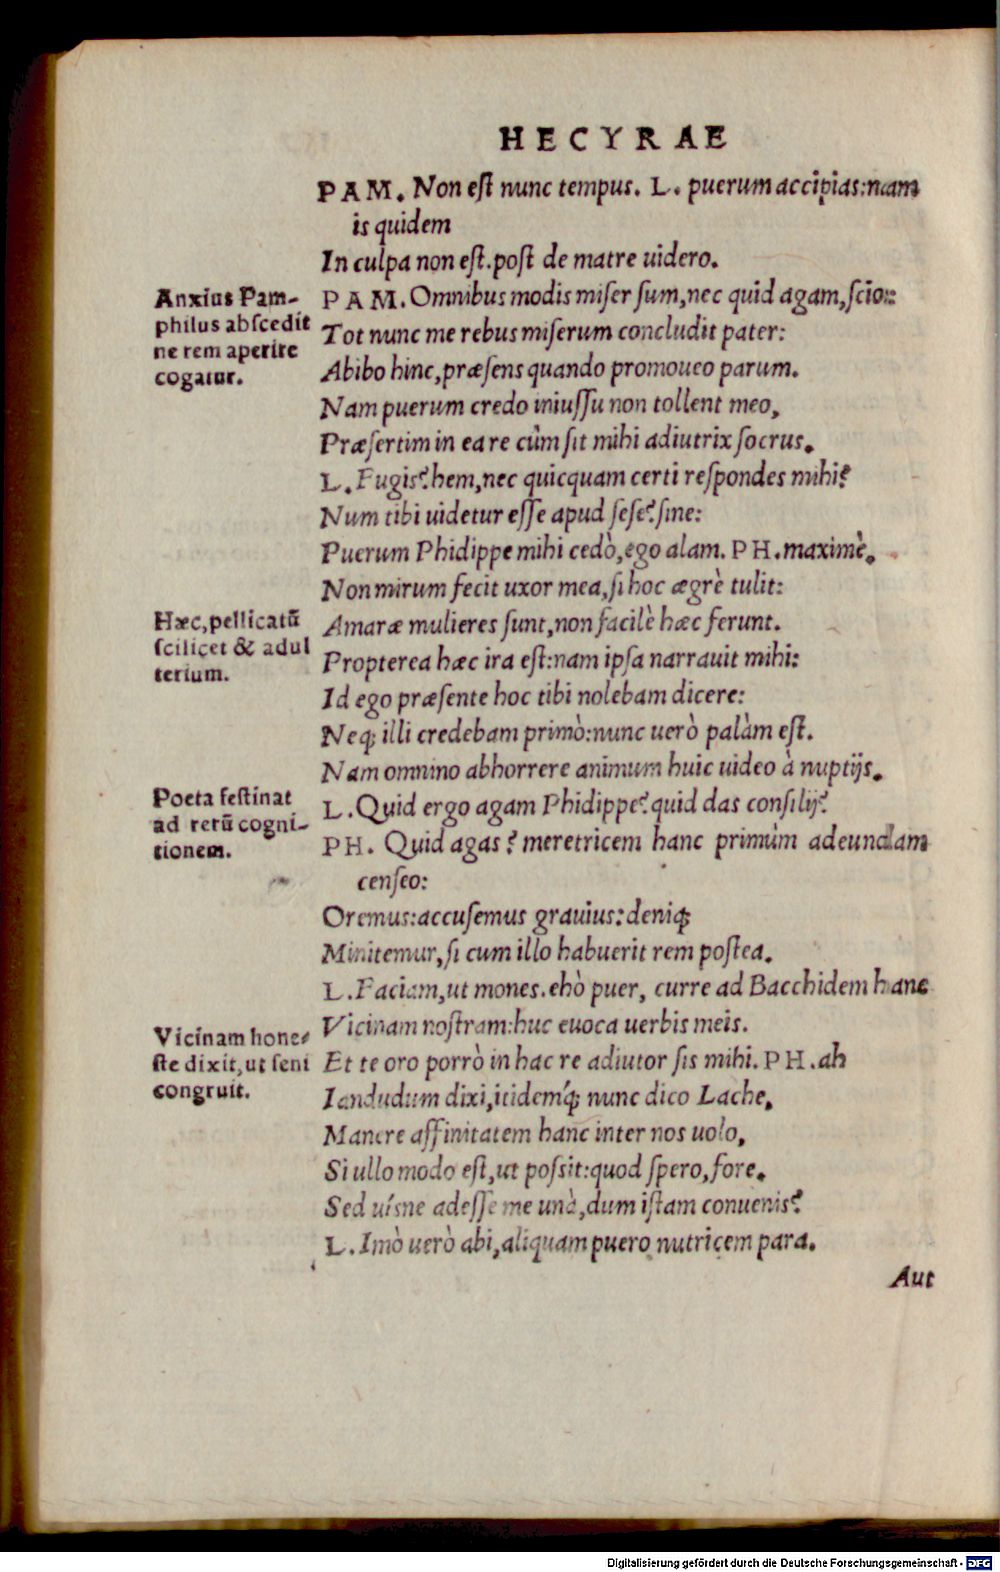 HECYRAE
PAM. Non eſt nunc tempus. L. puerum accipias:nam
is quidem
In culpa non eſt.poſt de matre uidero.
Anxius Pam-
philus abſcedit
ne rem aperire
cogatur.
PAM. Omnibus modis miſer ſum,nec quid agam,ſcio:
Tot nunc me rebus miſerum concludit pater:
Abibo hinc,præſens quando promoueo parum.
Nam puerum credo iniuſſu non tollent meo,
Præſertim in ea re cùm ſit mihi adiutrix ſocrus.
L. Fugis? hem,nec quicquam certi reſpondes mihi?
Num tibi uidetur eſſe apud ſeſe? ſine:
Puerum Phidippe mihi cedò,ego alam. PH. maximè.
Non mirum fecit uxor mea,ſi hoc ægrè tulit:
Hæc,pellicatũ
ſcilicet & adul
terium.
Amaræ mulieres ſunt,non facilè hæc ferunt.
Propterea hæc ira eſt:nam ipſa narrauit mihi:
Id ego præſente hoc tibi nolebam dicere:
Neq; illi credebam primò:nunc uerò palàm eſt.
Nam omnino abhorrere animum huic uideo à nuptijs.
Poeta feſtinat
ad rerũ cogni-
tionem.
L. Quid ergo agam Phidippe? quid das conſilij?
PH. Quid agas? meretricem hanc primùm adeundam
cenſeo:
Oremus:accuſemus grauius:deniq;
Minitemur,ſi cum illo habuerit rem poſtea.
L. Faciam,ut mones.ehò puer, curre ad Bacchidem hanc
Vicinam hone-
ſte dixit,ut ſeni
congruit.
Vicinam noſtram:huc euoca uerbis meis.
Et te oro porrò in hac re adiutor ſis mihi. PH. ah
Iandudum dixi,itidemq́; nunc dico Lache,
Manere affinitatem hanc inter nos uolo,
Si ullo modo eſt,ut poſsit:quod ſpero,fore.
Sed uíſne adeſſe me unà,dum iſtam conuenis?
L. Imò uerò abi,aliquam puero nutricem para.
Aut
Digitalisierung gefördert durch die Deutsche Forschungsgemeinschaft - DFG